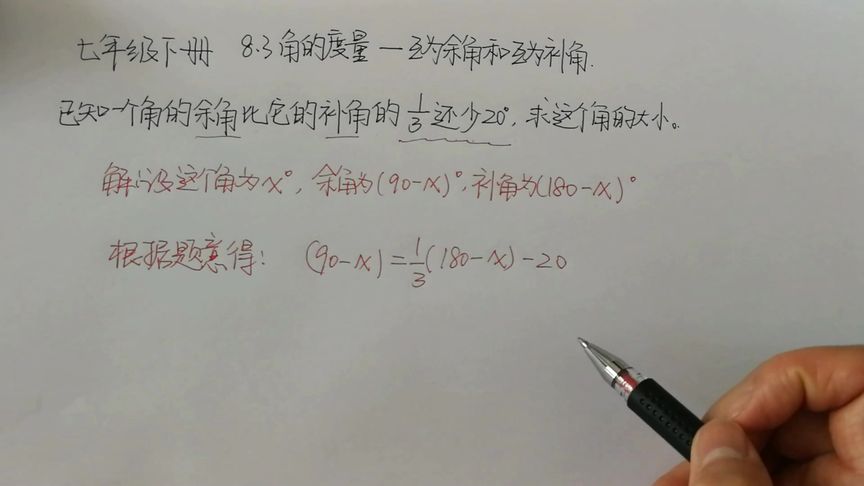 七年级下册 8.3角的度量—互为余角和互为补角.
已知一个角的余角比它的补角的1/3还少20°,求这个角的大小。
解:设这个角为x°,余角为(90-x)°,补角为(180-x)°
根据题意得: (90-x)=1/3(180-x)-20